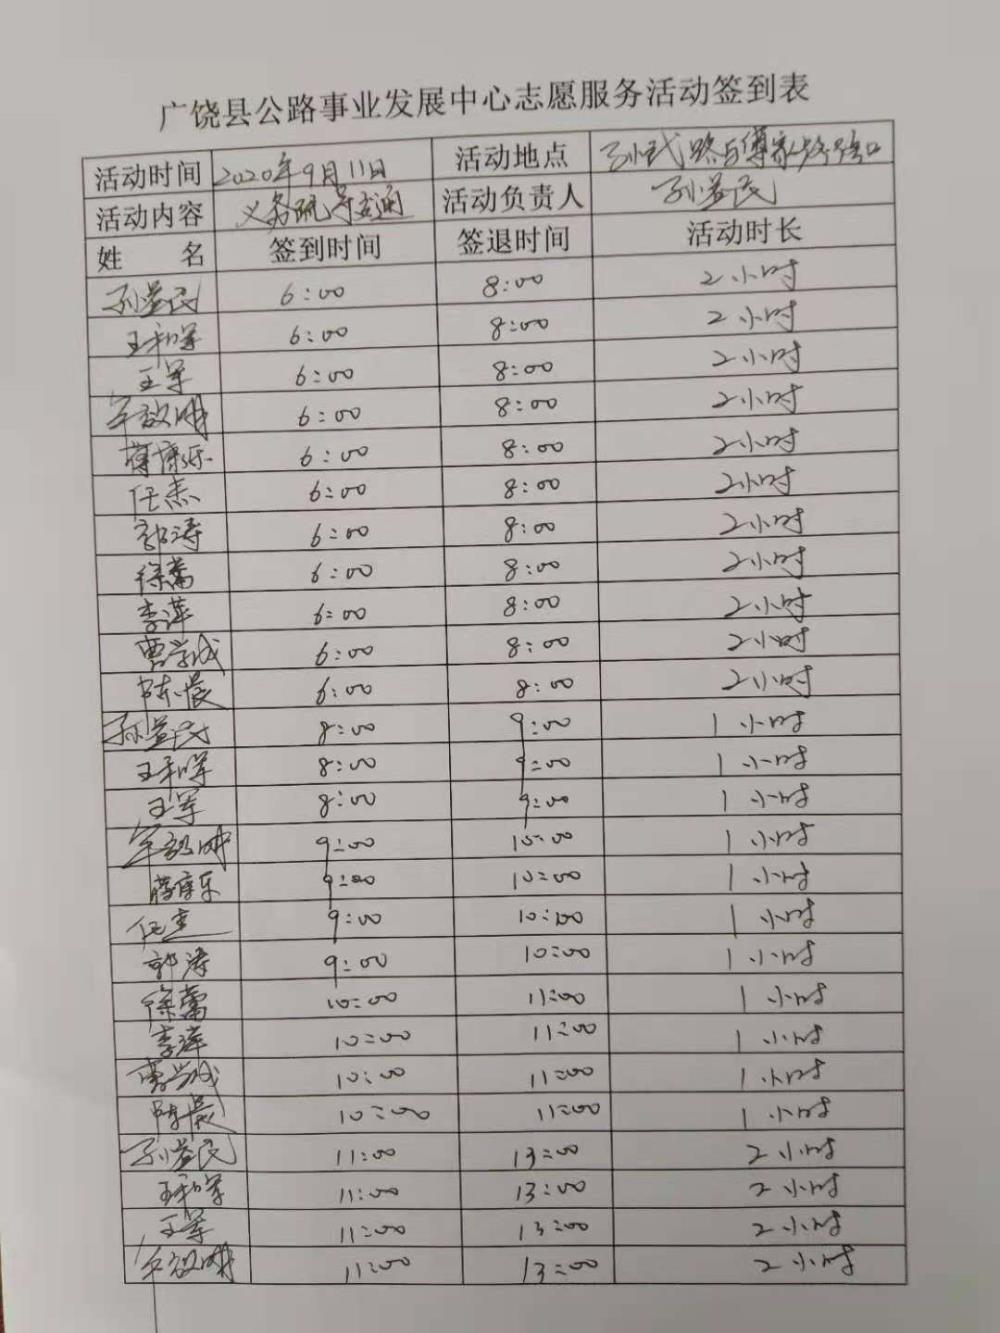 广饶县公路事业发展中心志愿服务活动签到表
活动时间 2020年9月11日 活动地点 孙武路与傅家路路口
活动内容 义务疏导交通 活动负责人 孙益民
姓 名 签到时间 签退时间 活动时长
孙益民 6:00 8:00 2小时
王和军 6:00 8:00 2小时
王军 6:00 8:00 2小时
6:00 8:00 2小时
薄康乐 6:00 8:00 2小时
任杰 6:00 8:00 2小时
郭涛 6:00 8:00 2小时
徐蕾 6:00 8:00 2小时
李萍 6:00 8:00 2小时
曹学成 6:00 8:00 2小时
陈晨 6:00 8:00 2小时
孙益民 8:00 9:00 1小时
王和军 8:00 9:00 1小时
王军 8:00 9:00 1小时
9:00 10:00 1小时
薄康乐 9:00 10:00 1小时
任杰 9:00 10:00 1小时
郭涛 9:00 10:00 1小时
徐蕾 10:00 11:00 1小时
李萍 10:00 11:00 1小时
曹学成 10:00 11:00 1小时
陈晨 10:00 11:00 1小时
孙益民 11:00 13:00 2小时
王和军 11:00 13:00 2小时
王军 11:00 13:00 2小时
11:00 13:00 2小时